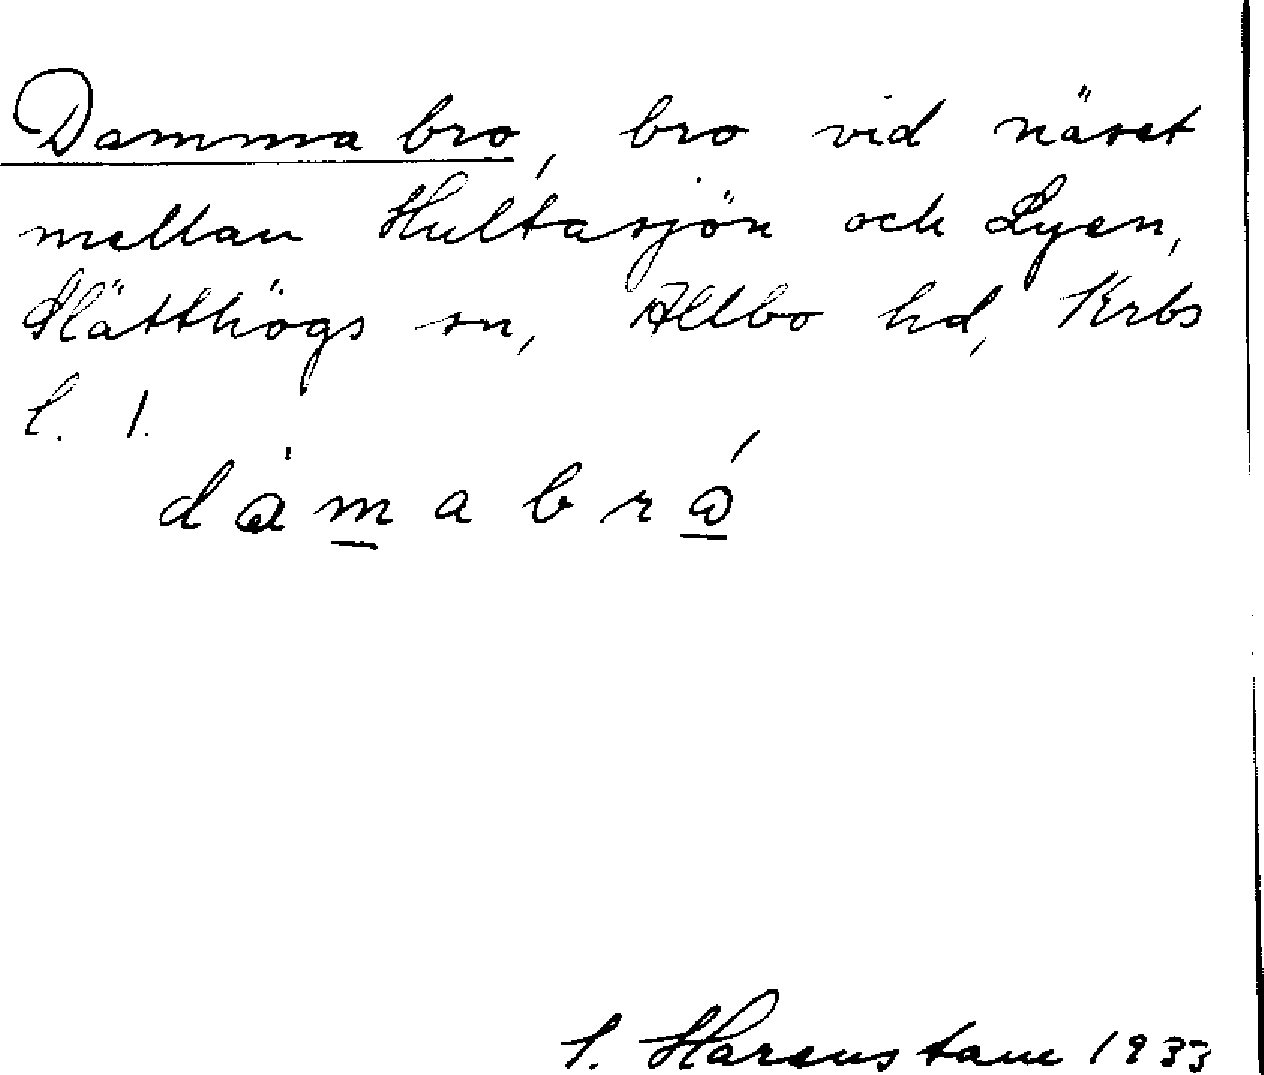 Damma bro, bro vid näset
mellan Hultasjön och Lyen,
Slätthögs sn, Allbo hd, Krbs
l. 1.
damabro
S. Harenstam 1933